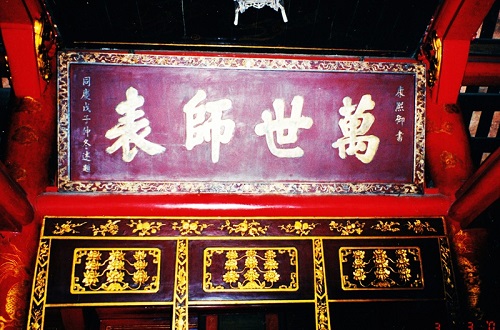 康熙御書
萬世師表
同慶戊子仲冬